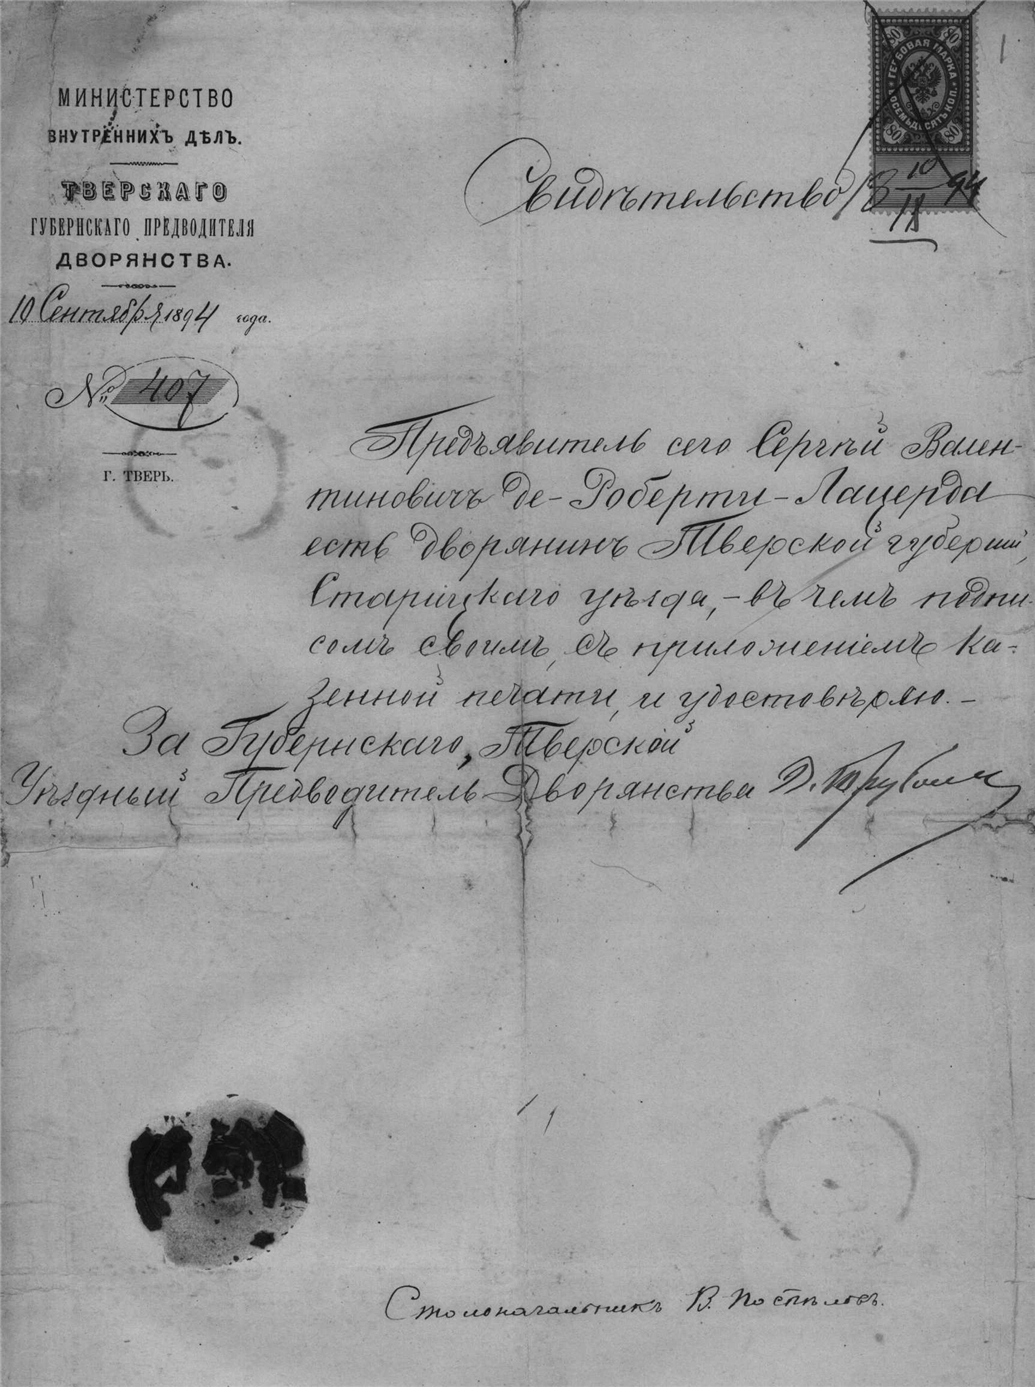 МИНИСТЕРСТВО
ВНУТРЕННИХЪ ДѢЛЪ.
ТВЕРСКАГО
ГУБЕРНСКАГО ПРЕДВОДИТЕЛЯ
ДВОРЯНСТВА.
10 Сентября 1894 года.
№ 407
Г. ТВЕРЬ.
ГЕРБОВАЯ МАРКА
ОСЕМЬДЕСЯТЪ КОП.
80 80
80 80
1
Свидѣтельство
18 10/IX 94
Предъявитель сего Сергѣй Вален-
тиновичъ де-Роберти-Лацерда
есть дворянинъ Тверской губерніи,
Старицкаго уѣзда,-въ чемъ подпи-
сомъ своимъ, съ приложеніемъ ка-
зенной печати, и удостовѣряю.-
За Губернскаго, Тверской
Уѣздный Предводитель Дворянства Д.
Столоначальникъ В.